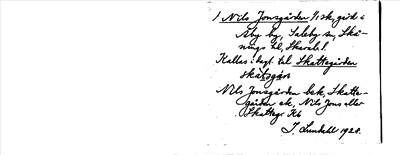 1 Nils Jonsgården 1/1 sk, gård i
Åby by, Saleby sn, Skå-
nings hd, Skarab. l.
Kallas i dagl. tal Skattegården
skatsgárn
Nils Jonsgården bek, Skatte-
gården ek, Nils Jons eller
Skattegr Kb
I. Lundahl 1928.